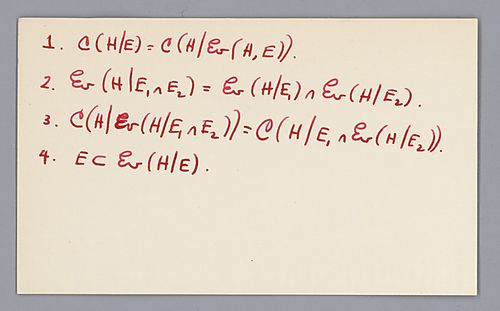 1. C(H/E) = C(H/Ev(H,E)).
2. Ev(H|E₁∧E₂) = Ev(H/E₁)∧Ev(H/E₂).
3. C(H/Ev(H/E₁∧E₂)) = C(H/E₁∧Ev(H/E₂)).
4. E⊂Ev(H/E).